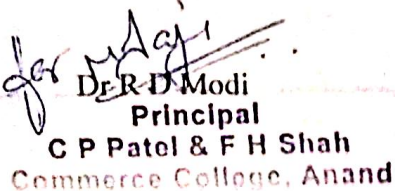 for
Dr R D Modi
Principal
C P Patel & F H Shah
Commerce College, Anand